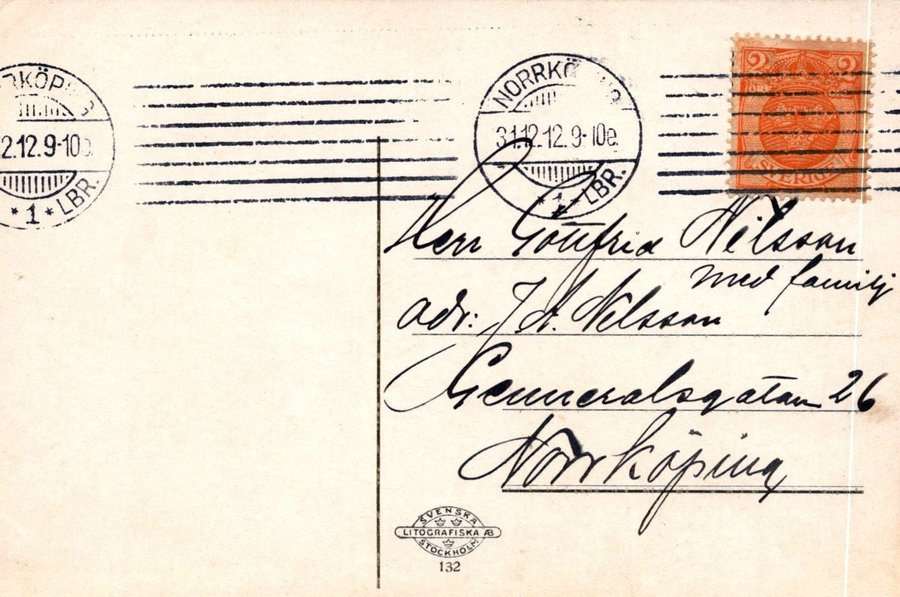 NORRKÖPING
2.12.9-10e.
* 1 * LBR.
NORRKÖPING
31.12.12.9-10e.
* 1 * LBR.
2 2
SVERIGE
Herr Gottfrid Nilsson
med familj
adr: J. A. Nilsson
Genneralsgatan 26
Norrköping
SVENSKA
LITOGRAFISKA AB
STOCKHOLM
132